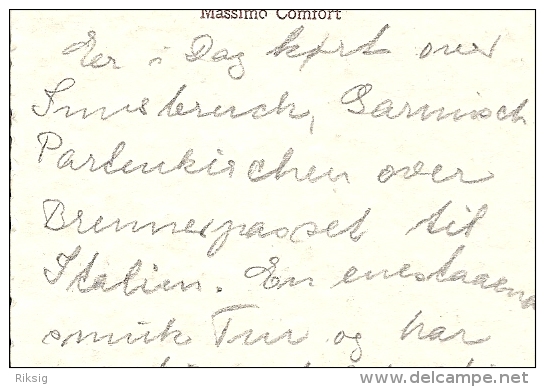 Massimo Comfort
Er i Dag kørt over
Innsbruck, Garmisch
Partenkirchen over
Brennerpasset til
Italien. En enestaaende
smuk Tur og har
Riksig
delcampe.net